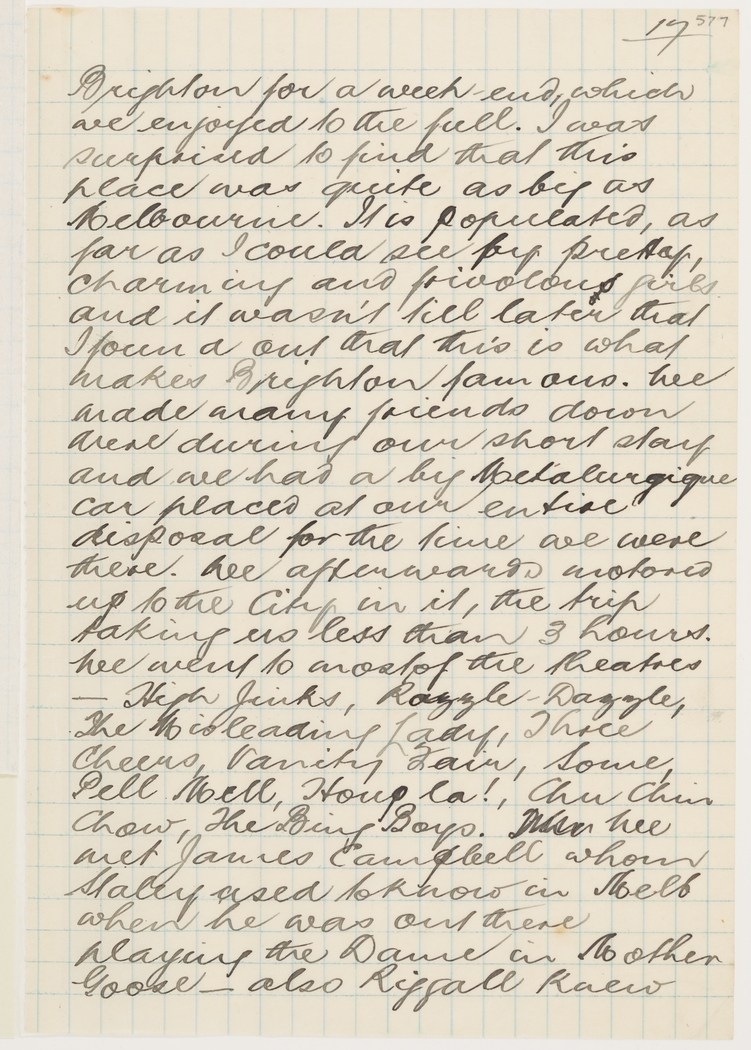 17 577
Brighton for a week-end, which
we enjoyed to the full. I was
surprised to find that this
place was quite as big as
Melbourne. It is populated, as
far as I could see by pretty,
charming and frivolous girls
and it wasn't till later that
I found out that this is what
makes Brighton famous. We
made many friends down
there during our short stay
and we had a big Metalurgique
car placed at our entire
disposal for the time we were
there. We afterwards motored
up to the City in it, the trip
taking us less than 3 hours.
We went to most of the theatres
— High Jinks, Razzle-Dazzle,
The Misleading Lady, Three
Cheers, Vanity Fair, Some,
Pell Mell, Houp la!, Chu Chin
Chow, The Bing Boys. We
met James Campbell whom
Stacey used to know in Melb
when he was out there
playing the Dame in Mother
Goose — also Riggall knew